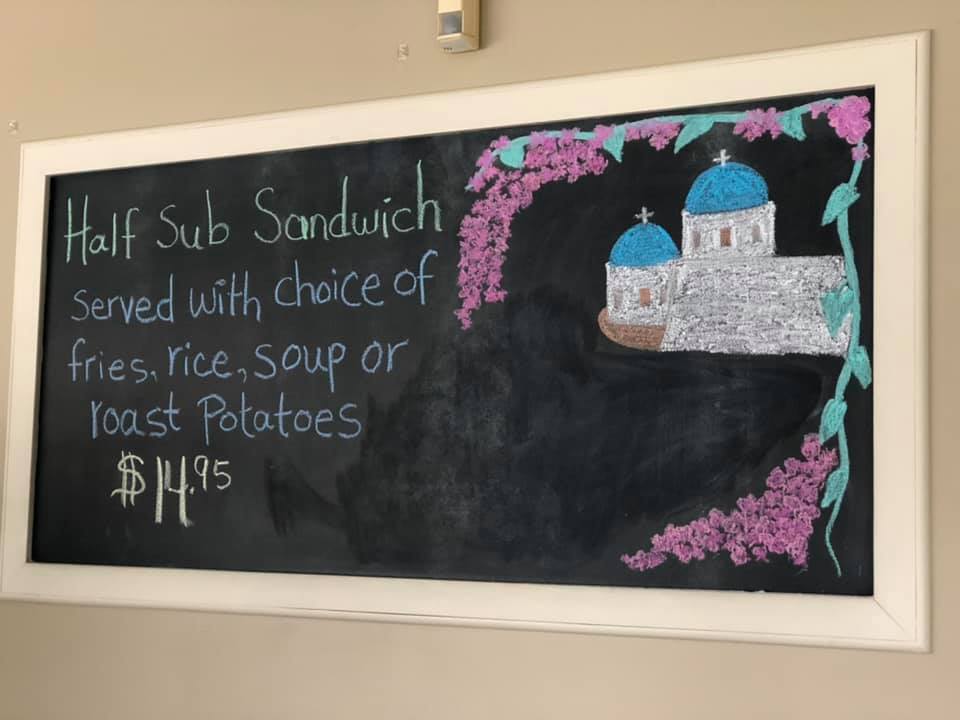 Half Sub Sandwich
served with choice of
fries, rice, soup or
roast Potatoes
$14.95